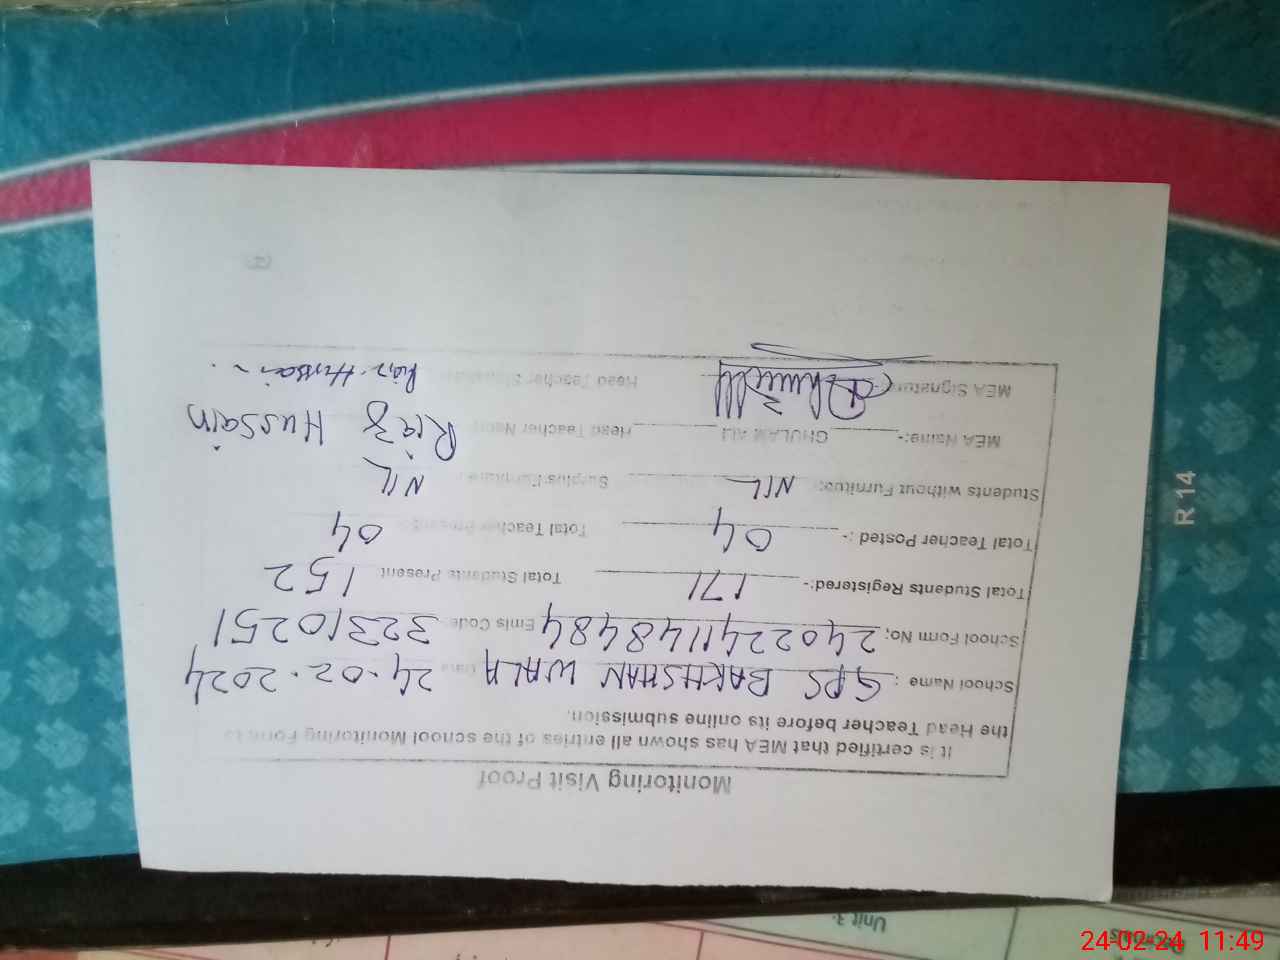 Monitoring Visit Proof
It is certified that MEA has shown all entries of the school Monitoring Form to
the Head Teacher before its online submission.
School Name : GPS BAKHSHAN WALA Date 24.02.2024
School Form No; 2402241148484 Emis Code 32310251
Total Students Registered:- 171 Total Students Present 152
Total Teacher Posted :- 04 Total Teacher Present 04
Students without Furnitue: NIL Surplus Furniture NIL
MEA Name:- GHULAM ALI Head Teacher Name Riaz Hussain
MEA Signature:- Head Teacher Riaz Hussain
R 14
Unit 3:
24-02-24 11:49